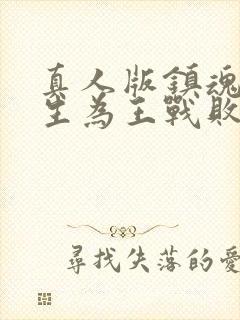 真人版鎮魂
生為王戰敗
尋找失落的愛